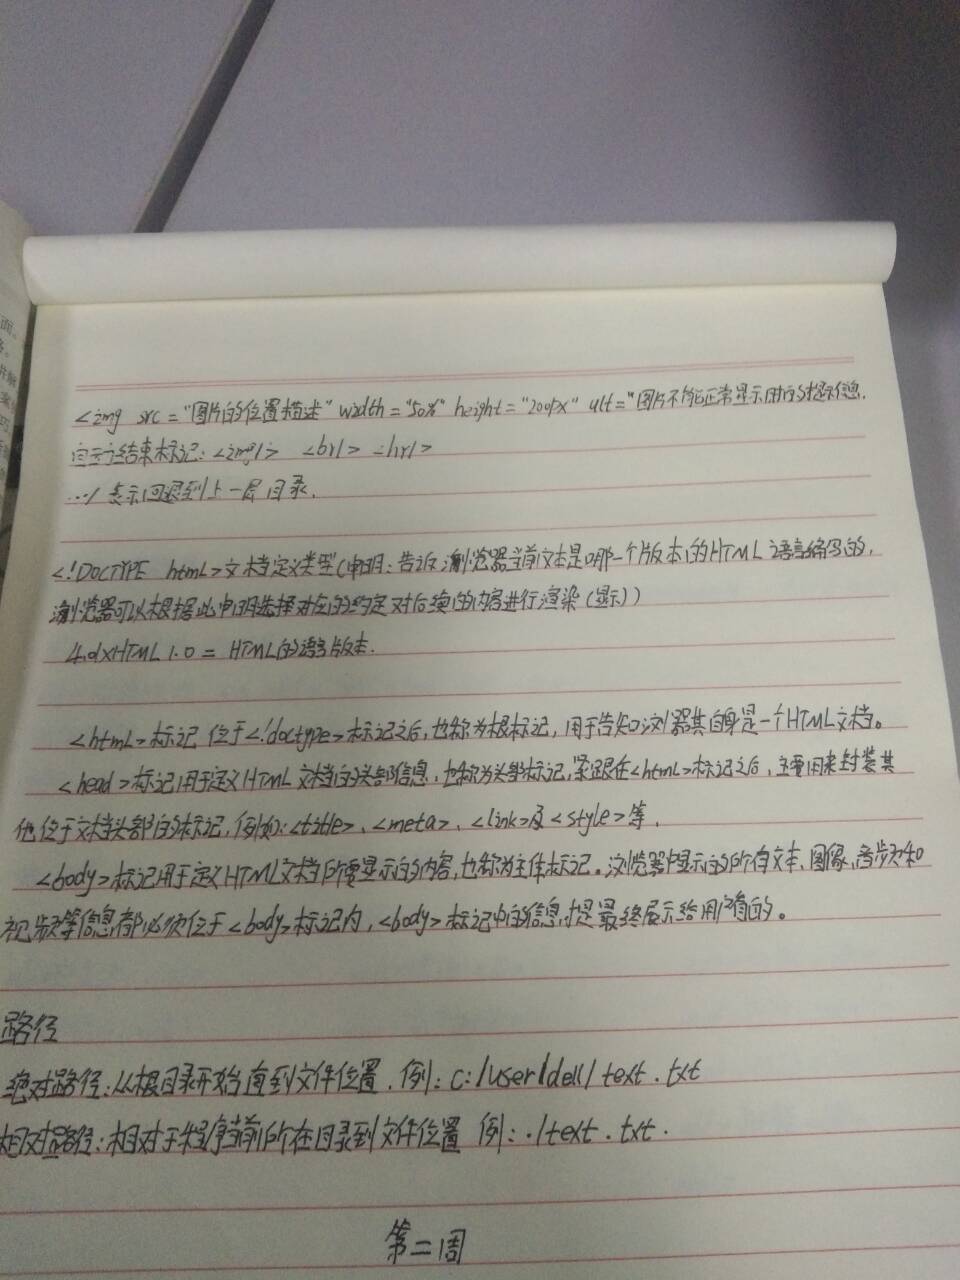 <img src="图片的位置描述" width="50%" height="200px" alt="图片不能正常显示时的提示信息.
结束标记:<img/> <br/> <hr/>
../ 表示回退到上一层目录.
<!DOCTYPE html>文档定义类型(申明:告诉浏览器当前文本是哪一个版本的HTML语言编写的,
浏览器可以根据此申明选择对应的约定对后续的内容进行渲染(显示))
XHTML 1.0 = HTML的语言版本.
<html>标记位于<!doctype>标记之后,也称为根标记,用于告知浏览器其自身是一个HTML文档。
<head>标记用于定义HTML文档的头部信息,也称为头部标记,紧跟在<html>标记之后,主要用来封装其
他位于文档头部的标记,例如:<title>、<meta>、<link>及<style>等,
<body>标记用于定义HTML文档所要显示的内容,也称为主体标记。浏览器中显示的所有文本、图像、音频和
视频等信息都必须位于<body>标记内,<body>标记中的信息才是最终展示给用户看的。
路径
绝对路径:从根目录开始直到文件位置.例:c:/user/dell/text.txt
相对路径:相对于程序当前所在目录到文件位置 例:./text.txt.
第二周